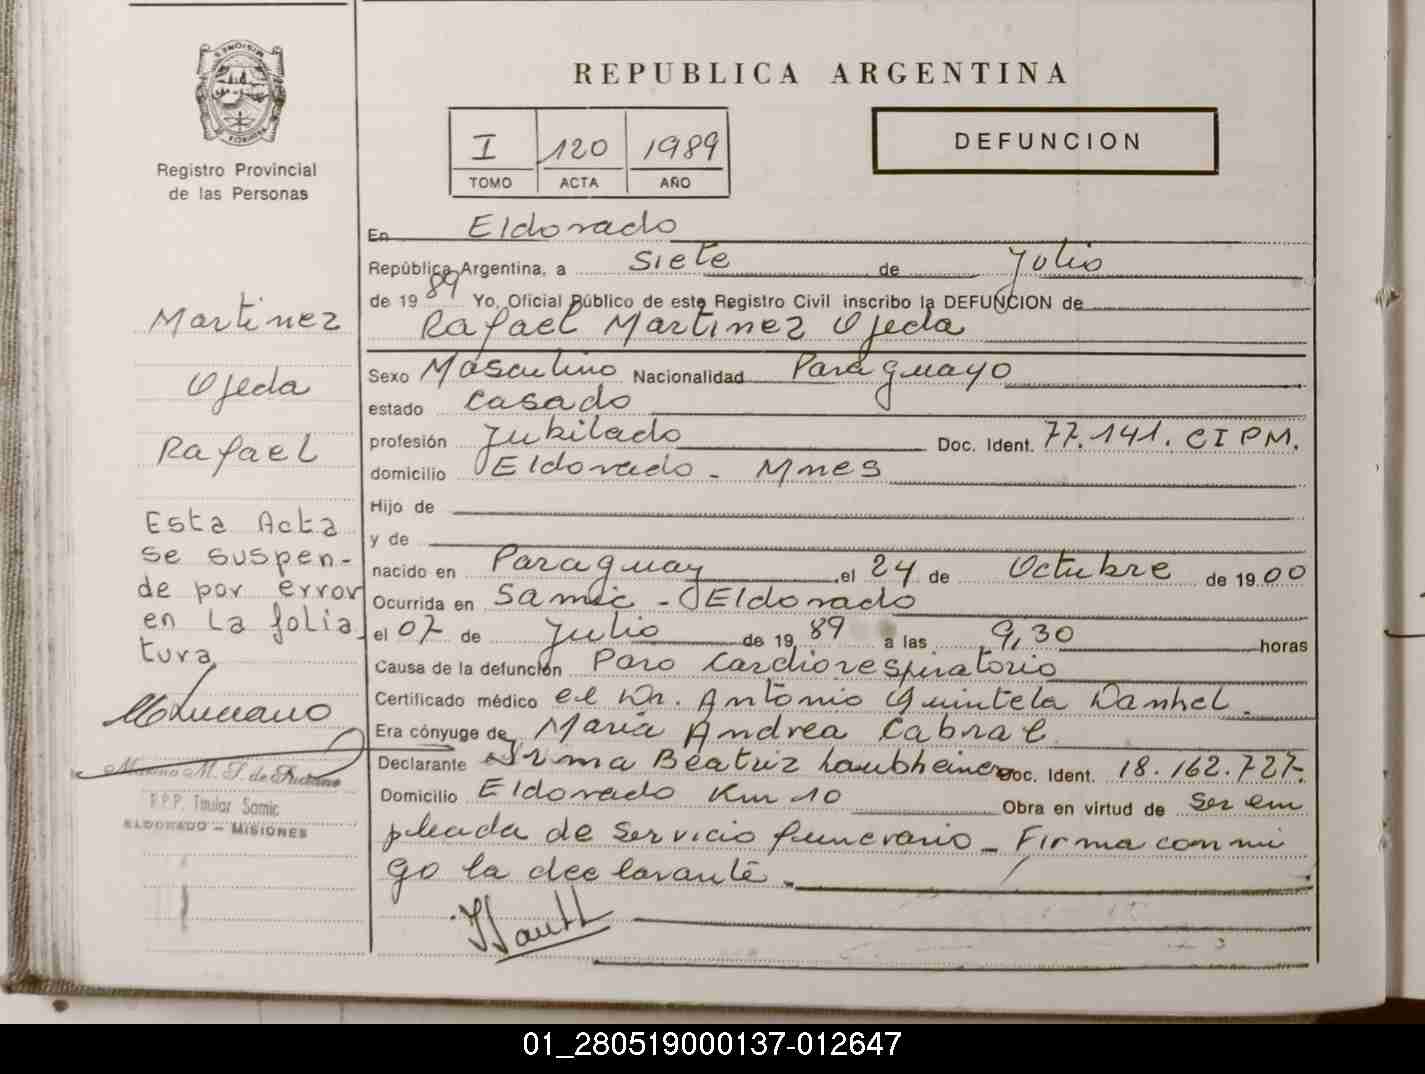 MISIONES
Registro Provincial
de las Personas
REPUBLICA ARGENTINA
I 120 1989
TOMO ACTA AÑO
DEFUNCION
En Eldorado
República Argentina, a siete de Julio
de 1989 Yo, Oficial Público de este Registro Civil inscribo la DEFUNCION de
Rafael Martinez Ojeda
Sexo Masculino Nacionalidad Paraguayo
estado casado
profesión Jubilado Doc. Ident. 77.141. CIPM.
domicilio Eldorado - Mnes
Hijo de
y de
nacido en Paraguay el 24 de Octubre de 1900
Ocurrida en Samic - Eldorado
el 07 de Julio de 1989 a las 9,30 horas
Causa de la defunción Paro Cardiorespiratorio
Certificado médico el Dr. Antonio Quintela Danhel.
Era cónyuge de Maria Andrea Cabral
Declarante Irma Beatriz Laubheiner Doc. Ident. 18.162.727-
Domicilio Eldorado Km 10 Obra en virtud de Ser em
pleada de servicio funerario - Firma conmi
go la declarante -
Martinez
Ojeda
Rafael
Esta Acta
se suspen-
de por error
en la folia
tura
Marino M. S. de
Titular Samic
ELDORADO - MISIONES
01_280519000137-012647